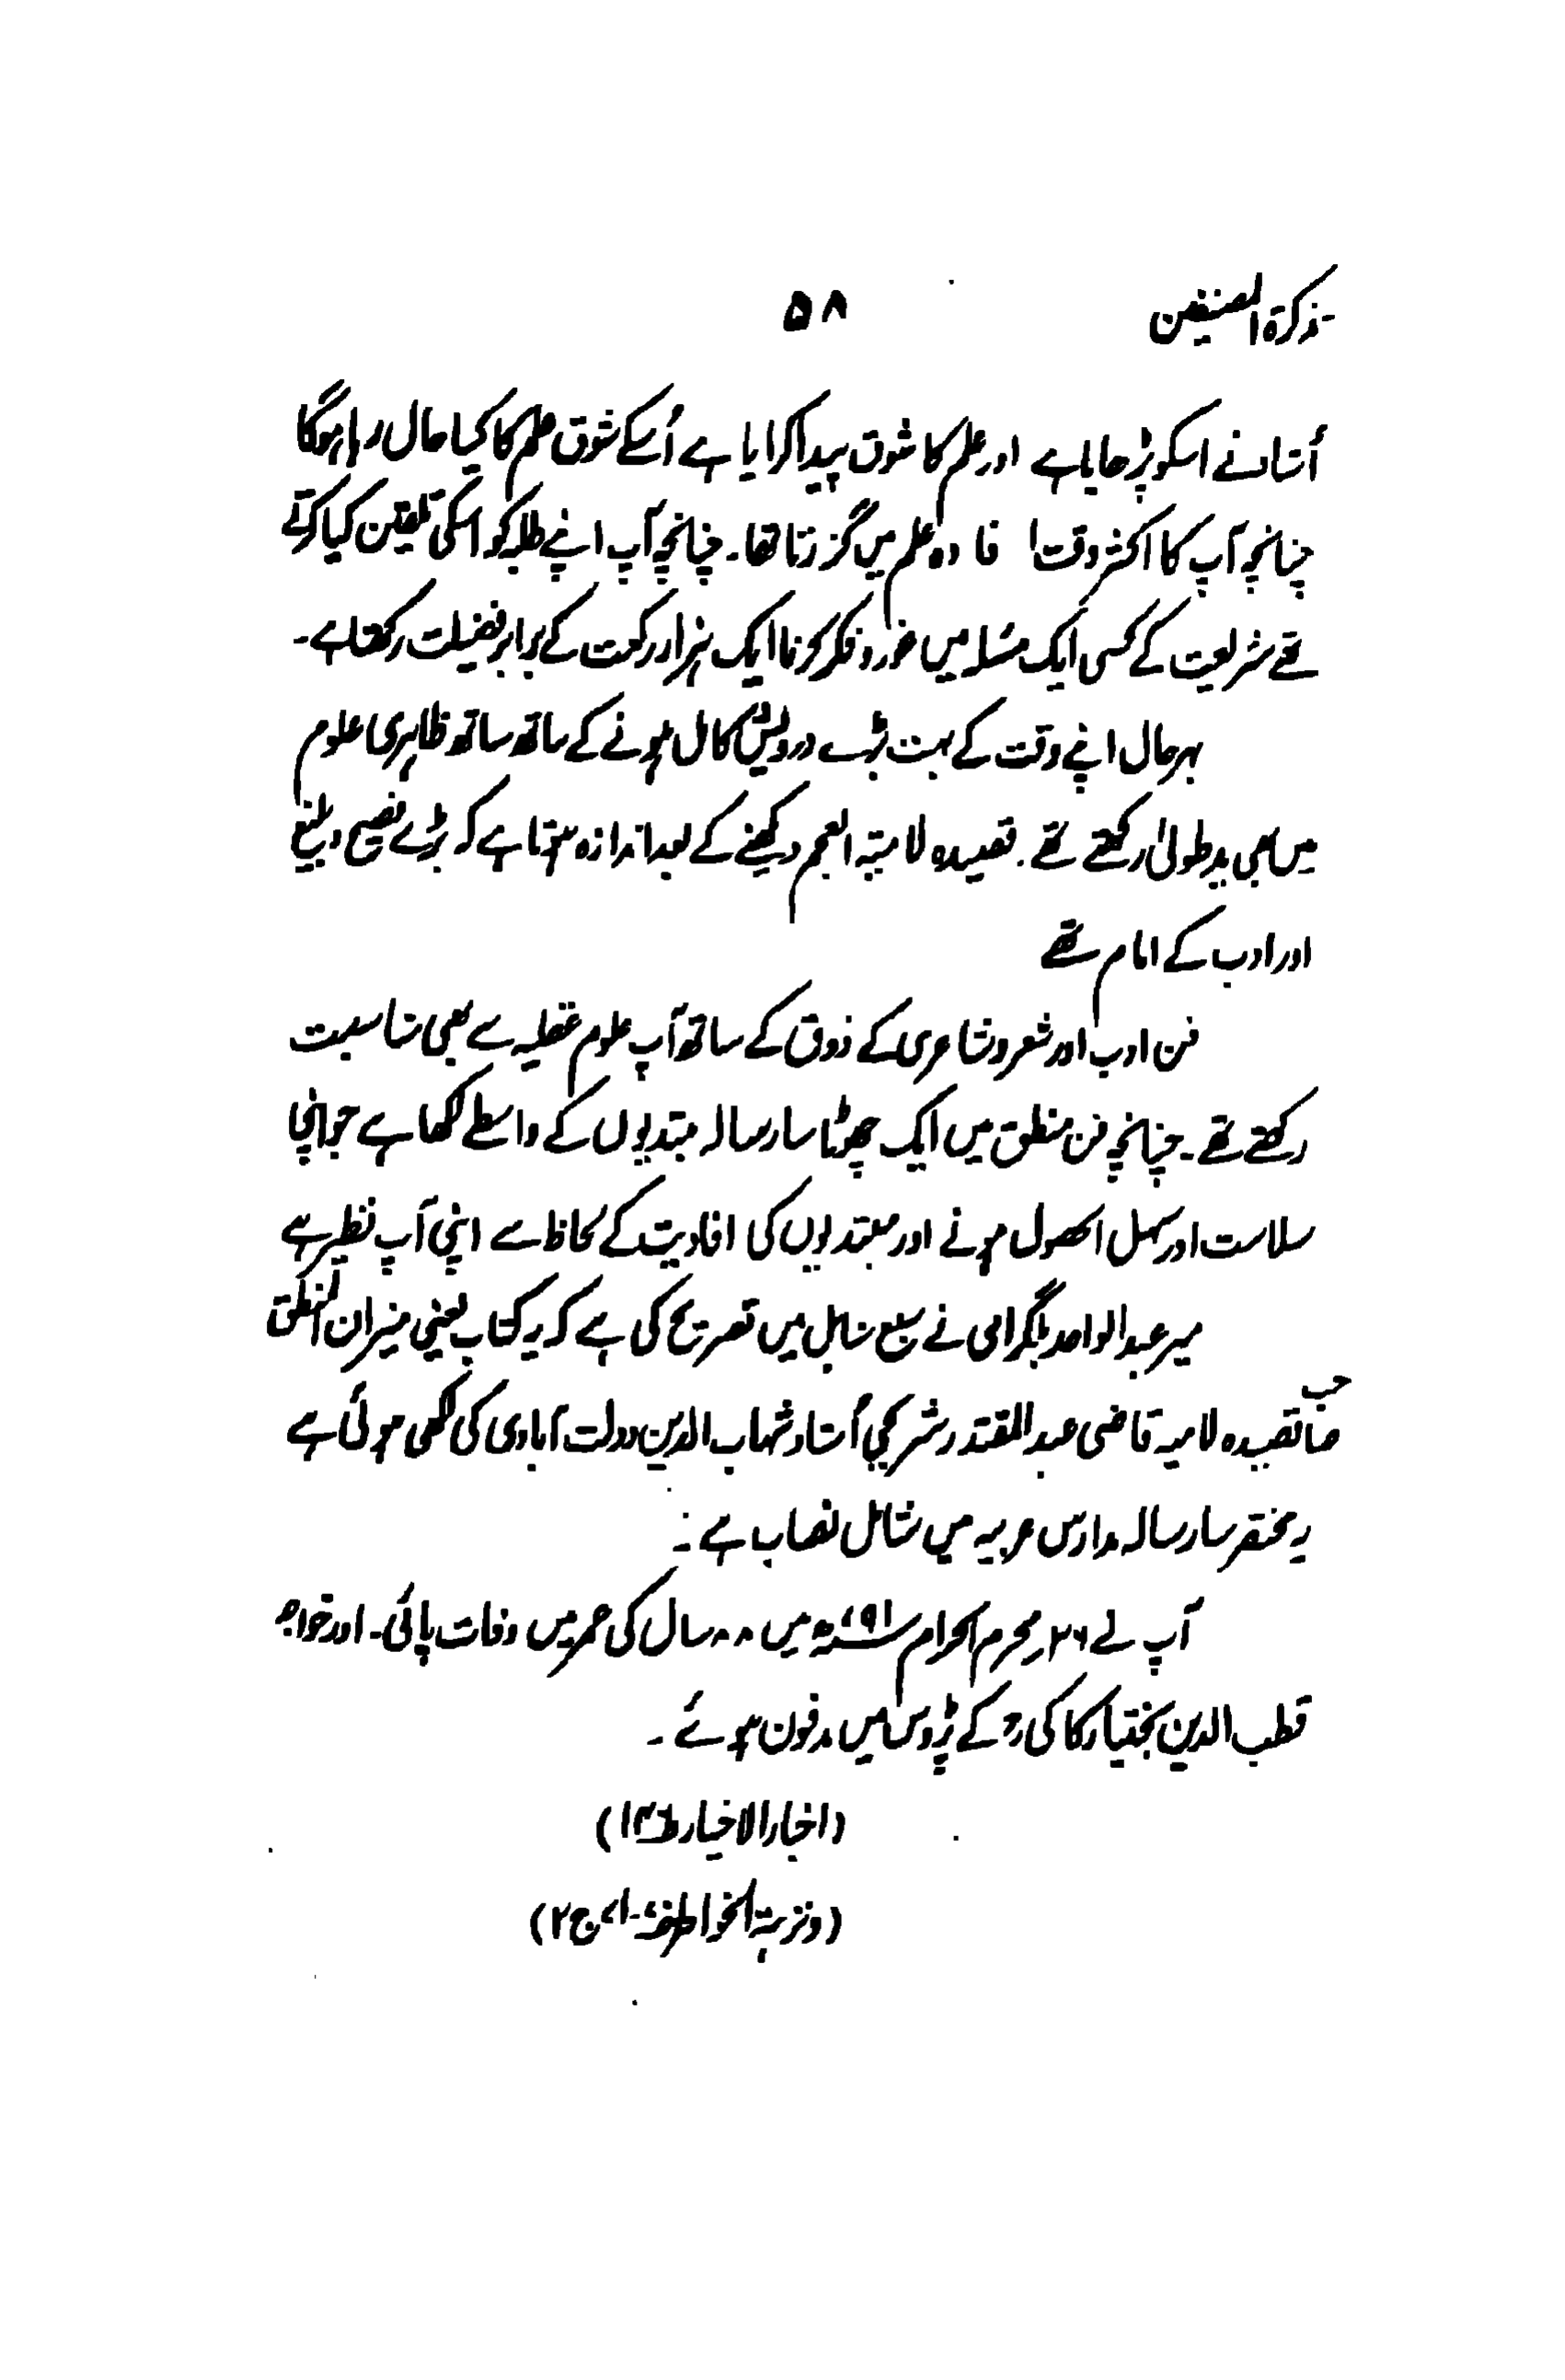 تذکرۃ المصنفین
۵۸
اُستاد نے اسکو پڑھایا ہے اور علم کا شوق پیدا کرایا ہے اُسکے شوق علم کا کیا حال رہا ہوگا
چنانچہ آپ کا اکثر وقت افادہ علم میں گزرتا تھا۔ چنانچہ آپ اپنے طلبہ کو اسکی تلقین کیا کرتے
تھے شریعت کے کسی ایک مسئلہ میں غور و فکر کرنا ایک ہزار رکعت کے برابر فضیلت رکھتا ہے۔
بہر حال اپنے وقت کے بہت بڑے درویش کامل ہونے کے ساتھ ساتھ ظاہری علوم
میں بھی ید طولیٰ رکھتے تھے۔ قصیدہ لامیۃ العجم دیکھنے کے بعد اندازہ ہوتا ہے کہ بڑے فصیح و بلیغ
اور ادب کے امام تھے
فن ادب اور شعر و شاعری کے ذوق کے ساتھ آپ علوم عقلیہ سے بھی مناسبت
رکھتے تھے۔ چنانچہ فن منطق میں ایک چھوٹا سا رسالہ مبتدیوں کے واسطے لکھا ہے جو اپنی
سلاست اور سہل الحصول ہونے اور مبتدیوں کی افادیت کے لحاظ سے اپنی آپ نظیر ہے
میر عبدالواحد بلگرامی نے سبع سنابل میں تصریح کی ہے کہ یہ کتاب یعنی میزان المنطق
صاحب قصیدہ لامیہ قاضی عبدالمقتدر شریحی اُستاد شہاب الدین دولت آبادی کی لکھی ہوئی ہے
یہ مختصر سا رسالہ مدارس عربیہ میں شامل نصاب ہے :۔
آپ نے ۲۶ محرم الحرام ۷۹۱ھ میں ۸۸ سال کی عمر میں وفات پائی۔ اور خواجہ
قطب الدین بختیار کاکی رح کے پڑوس میں مدفون ہوئے ۔
(اخبار الاخیار
(و نزہۃ الخواطر ج ۲)